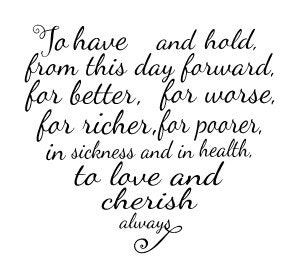 To have and hold,
from this day forward,
for better, for worse,
for richer, for poorer,
in sickness and in health,
to love and
cherish
always